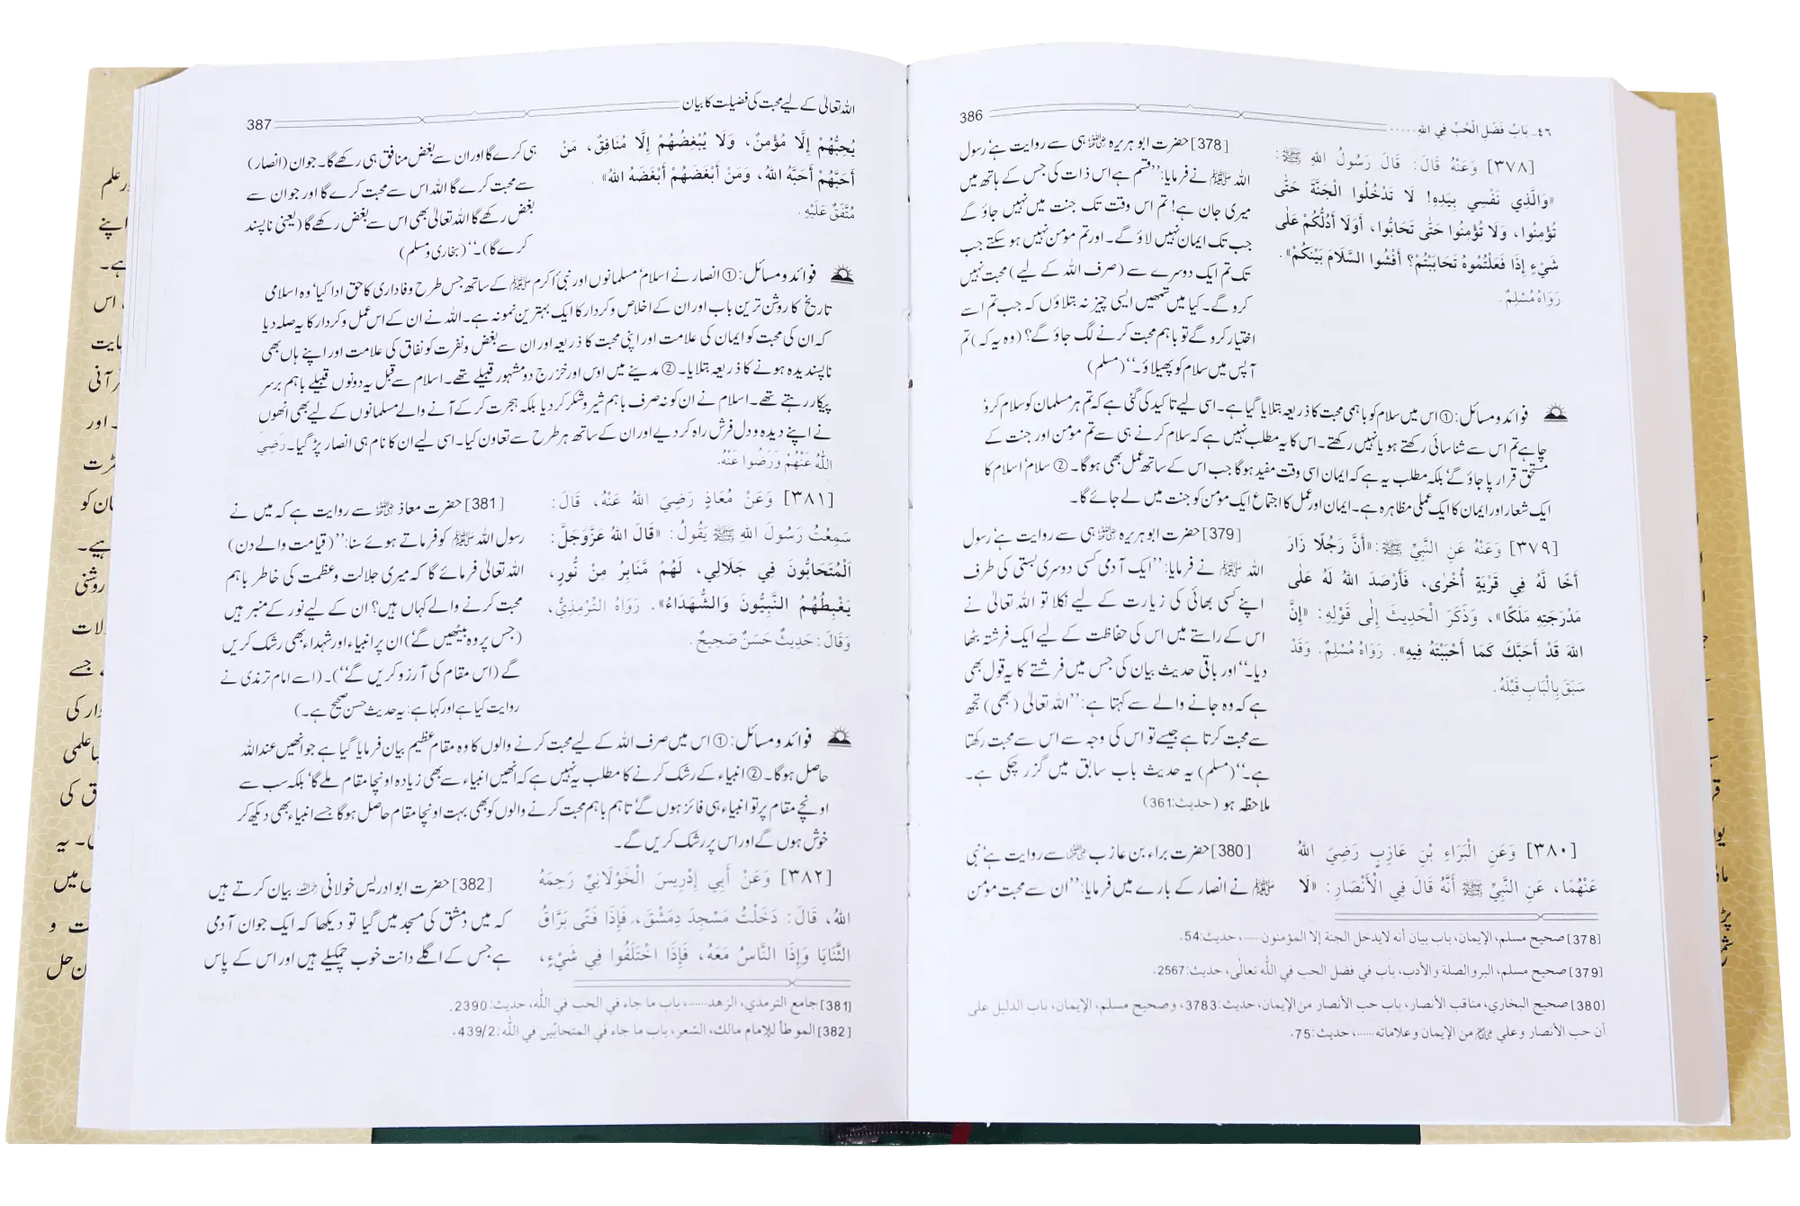 386
٤٦ـ بَابُ فَضْلِ الْحُبِّ فِي اللهِ .....
[٣٧٨] وَعَنْهُ قَالَ: قَالَ رَسُولُ اللهِ ﷺ:
«وَالَّذِي نَفْسِي بِيَدِهِ! لَا تَدْخُلُوا الْجَنَّةَ حَتَّى
تُؤْمِنُوا، وَلَا تُؤْمِنُوا حَتَّى تَحَابُّوا، أَوَلَا أَدُلُّكُمْ عَلَى
شَيْءٍ إِذَا فَعَلْتُمُوهُ تَحَابَبْتُمْ؟ أَفْشُوا السَّلَامَ بَيْنَكُمْ».
رَوَاهُ مُسْلِمٌ.
[378] حضرت ابو ہریرہ ؓ ہی سے روایت ہے‘ رسول
اللہ ﷺ نے فرمایا: ’’قسم ہے اس ذات کی جس کے ہاتھ میں
میری جان ہے! تم اس وقت تک جنت میں نہیں جاؤ گے
جب تک ایمان نہیں لاؤ گے۔ اور تم مومن نہیں ہو سکتے جب
تک تم ایک دوسرے سے (صرف اللہ کے لیے) محبت نہیں
کرو گے۔ کیا میں تمھیں ایسی چیز نہ بتلاؤں کہ جب تم اسے
اختیار کرو گے تو باہم محبت کرنے لگ جاؤ گے؟ (وہ یہ کہ) تم
آپس میں سلام کو پھیلاؤ۔‘‘ (مسلم)
فوائد و مسائل: ① اس میں سلام کو باہمی محبت کا ذریعہ بتلایا گیا ہے۔ اسی لیے تاکید کی گئی ہے کہ تم ہر مسلمان کو سلام کرو‘
چاہے تم اس سے شناسائی رکھتے ہو یا نہیں رکھتے۔ اس کا یہ مطلب نہیں ہے کہ سلام کرنے ہی سے تم مومن اور جنت کے
مستحق قرار پا جاؤ گے‘ بلکہ مطلب یہ ہے کہ ایمان اسی وقت مفید ہوگا جب اس کے ساتھ عمل بھی ہوگا۔ ② سلام‘ اسلام کا
ایک شعار اور ایمان کا ایک عملی مظاہرہ ہے۔ ایمان اور عمل کا اجتماع ایک مومن کو جنت میں لے جائے گا۔
[٣٧٩] وَعَنْهُ عَنِ النَّبِيِّ ﷺ: «أَنَّ رَجُلًا زَارَ
أَخًا لَّهُ فِي قَرْيَةٍ أُخْرَى، فَأَرْصَدَ اللهُ لَهُ عَلَى
مَدْرَجَتِهِ مَلَكًا»، وَذَكَرَ الْحَدِيثَ إِلَى قَوْلِهِ: «إِنَّ
اللهَ قَدْ أَحَبَّكَ كَمَا أَحْبَبْتَهُ فِيهِ». رَوَاهُ مُسْلِمٌ. وَقَدْ
سَبَقَ بِالْبَابِ قَبْلَهُ.
[379] حضرت ابو ہریرہ ؓ ہی سے روایت ہے‘ رسول
اللہ ﷺ نے فرمایا: ’’ایک آدمی کسی دوسری بستی کی طرف
اپنے کسی بھائی کی زیارت کے لیے نکلا تو اللہ تعالیٰ نے
اس کے راستے میں اس کی حفاظت کے لیے ایک فرشتہ بٹھا
دیا۔‘‘ اور باقی حدیث بیان کی جس میں فرشتے کا یہ قول بھی
ہے کہ وہ جانے والے سے کہتا ہے: ’’اللہ تعالیٰ (بھی) تجھ
سے محبت کرتا ہے جیسے تو اس کی وجہ سے اس سے محبت رکھتا
ہے۔‘‘ (مسلم) یہ حدیث باب سابق میں گزر چکی ہے۔
ملاحظہ ہو (حدیث:361)
[٣٨٠] وَعَنِ الْبَرَاءِ بْنِ عَازِبٍ رَضِيَ اللهُ
عَنْهُمَا، عَنِ النَّبِيِّ ﷺ أَنَّهُ قَالَ فِي الْأَنْصَارِ: «لَا
[380] حضرت براء بن عازب ؓ سے روایت ہے‘ نبی
ﷺ نے انصار کے بارے میں فرمایا: ’’ان سے محبت مومن
[378] صحيح مسلم، الإيمان، باب بيان أنه لا يدخل الجنة إلا المؤمنون......، حديث:54.
[379] صحيح مسلم، البر والصلة والأدب، باب في فضل الحب في الله تعالى، حديث:2567.
[380] صحيح البخاري، مناقب الأنصار، باب حب الأنصار من الإيمان، حديث:3783، وصحيح مسلم، الإيمان، باب الدليل على
أن حب الأنصار وعلي ؓ من الإيمان وعلاماته......، حديث:75.
اللہ تعالیٰ کے لیے محبت کی فضیلت کا بیان
387
يُحِبُّهُمْ إِلَّا مُؤْمِنٌ، وَلَا يُبْغِضُهُمْ إِلَّا مُنَافِقٌ، مَنْ
أَحَبَّهُمْ أَحَبَّهُ اللهُ، وَمَنْ أَبْغَضَهُمْ أَبْغَضَهُ اللهُ».
مُتَّفَقٌ عَلَيْهِ.
ہی کرے گا اور ان سے بغض منافق ہی رکھے گا۔ جو ان (انصار)
سے محبت کرے گا اللہ اس سے محبت کرے گا اور جو ان سے
بغض رکھے گا اللہ تعالیٰ بھی اس سے بغض رکھے گا (یعنی ناپسند
کرے گا)۔‘‘ (بخاری و مسلم)
فوائد و مسائل: ① انصار نے اسلام‘ مسلمانوں اور نبیٔ اکرم ﷺ کے ساتھ جس طرح وفاداری کا حق ادا کیا‘ وہ اسلامی
تاریخ کا روشن ترین باب اور ان کے اخلاص و کردار کا ایک بہترین نمونہ ہے۔ اللہ نے ان کے اس عمل و کردار کا یہ صلہ دیا
کہ ان کی محبت کو ایمان کی علامت اور اپنی محبت کا ذریعہ اور ان سے بغض و نفرت کو نفاق کی علامت اور اپنے ہاں بھی
ناپسندیدہ ہونے کا ذریعہ بتلایا۔ ② مدینے میں اوس اور خزرج دو مشہور قبیلے تھے۔ اسلام سے قبل یہ دونوں قبیلے باہم برسر
پیکار رہتے تھے۔ اسلام نے ان کو نہ صرف باہم شیر و شکر کر دیا بلکہ ہجرت کر کے آنے والے مسلمانوں کے لیے بھی انھوں
نے اپنے دیدہ و دل فرش راہ کر دیے اور ان کے ساتھ ہر طرح سے تعاون کیا۔ اسی لیے ان کا نام ہی انصار پڑ گیا۔ رَضِيَ
اللهُ عَنْهُمْ وَرَضُوا عَنْهُ.
[٣٨١] وَعَنْ مُعَاذٍ رَضِيَ اللهُ عَنْهُ، قَالَ:
سَمِعْتُ رَسُولَ اللهِ ﷺ يَقُولُ: «قَالَ اللهُ عَزَّوَجَلَّ:
اَلْمُتَحَابُّونَ فِي جَلَالِي، لَهُمْ مَّنَابِرُ مِنْ نُّورٍ،
يَغْبِطُهُمُ النَّبِيُّونَ وَالشُّهَدَاءُ». رَوَاهُ التِّرْمِذِيُّ،
وَقَالَ: حَدِيثٌ حَسَنٌ صَحِيحٌ.
[381] حضرت معاذ ؓ سے روایت ہے کہ میں نے
رسول اللہ ﷺ کو فرماتے ہوئے سنا: ’’(قیامت والے دن)
اللہ تعالیٰ فرمائے گا کہ میری جلالت و عظمت کی خاطر باہم
محبت کرنے والے کہاں ہیں؟ ان کے لیے نور کے منبر ہیں
(جس پر وہ بیٹھیں گے) ان پر انبیاء اور شہداء بھی رشک کریں
گے (اس مقام کی آرزو کریں گے‘‘)۔ (اسے امام ترمذی نے
روایت کیا ہے اور کہا ہے: یہ حدیث حسن صحیح ہے۔)
فوائد و مسائل: ① اس میں صرف اللہ کے لیے محبت کرنے والوں کا وہ مقام عظیم بیان فرمایا گیا ہے جو انھیں عند اللہ
حاصل ہوگا۔ ② انبیاء کے رشک کرنے کا مطلب یہ نہیں ہے کہ انھیں انبیاء سے بھی زیادہ اونچا مقام ملے گا‘ بلکہ سب سے
اونچے مقام پر تو انبیاء ہی فائز ہوں گے‘ تاہم باہم محبت کرنے والوں کو بھی بہت اونچا مقام حاصل ہوگا جسے انبیاء بھی دیکھ کر
خوش ہوں گے اور اس پر رشک کریں گے۔
[٣٨٢] وَعَنْ أَبِي إِدْرِيسَ الْخَوْلَانِيِّ رَحِمَهُ
اللهُ، قَالَ: دَخَلْتُ مَسْجِدَ دِمَشْقَ، فَإِذَا فَتًى بَرَّاقُ
الثَّنَايَا وَإِذَا النَّاسُ مَعَهُ، فَإِذَا اخْتَلَفُوا فِي شَيْءٍ،
[382] حضرت ابو ادریس خولانی ؒ بیان کرتے ہیں
کہ میں دمشق کی مسجد میں گیا تو دیکھا کہ ایک جوان آدمی
ہے جس کے اگلے دانت خوب چمکیلے ہیں اور اس کے پاس
[381] جامع الترمذي، الزهد......، باب ما جاء في الحب في الله، حديث:2390.
[382] الموطأ للإمام مالك، الشعر، باب ما جاء في المتحابين في الله:439/2.